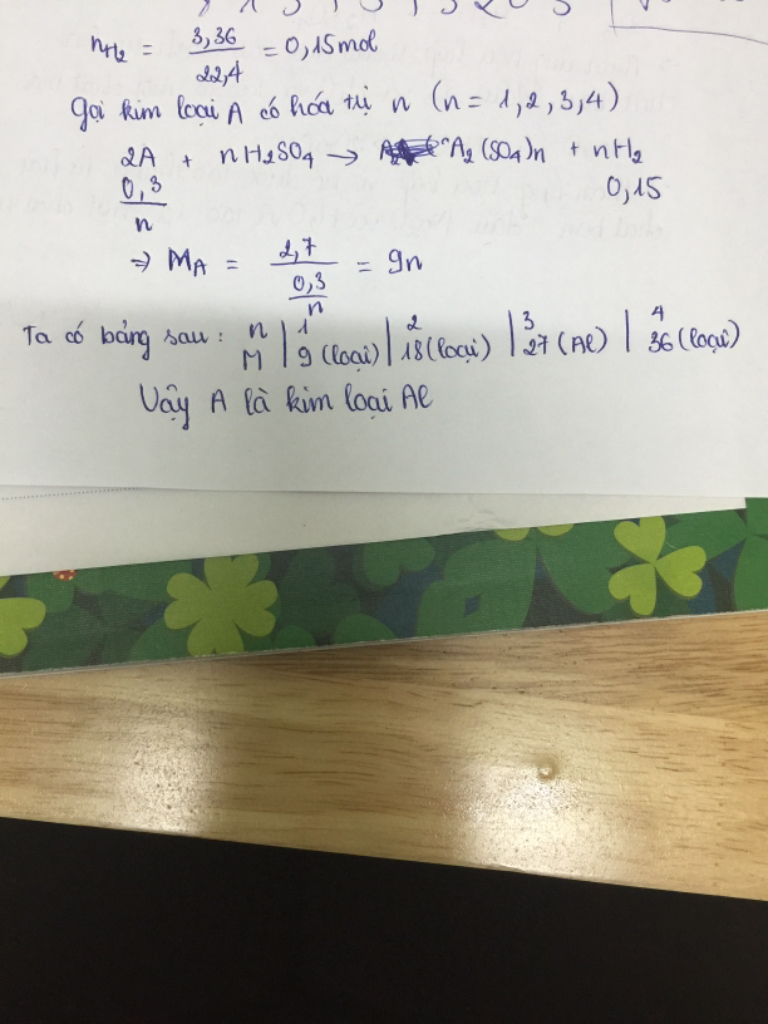 nH2 = 3,36 / 22,4 = 0,15mol
gọi kim loại A có hóa trị n (n = 1,2,3,4)
2A + nH2SO4 → A2(SO4)n + nH2
0,3 / n 0,15
⇒ MA = 2,7 / (0,3 / n) = 9n
Ta có bảng sau: n | 1 | 2 | 3 | 4
M | 9 (loại) | 18 (loại) | 27 (Al) | 36 (loại)
Vậy A là kim loại Al